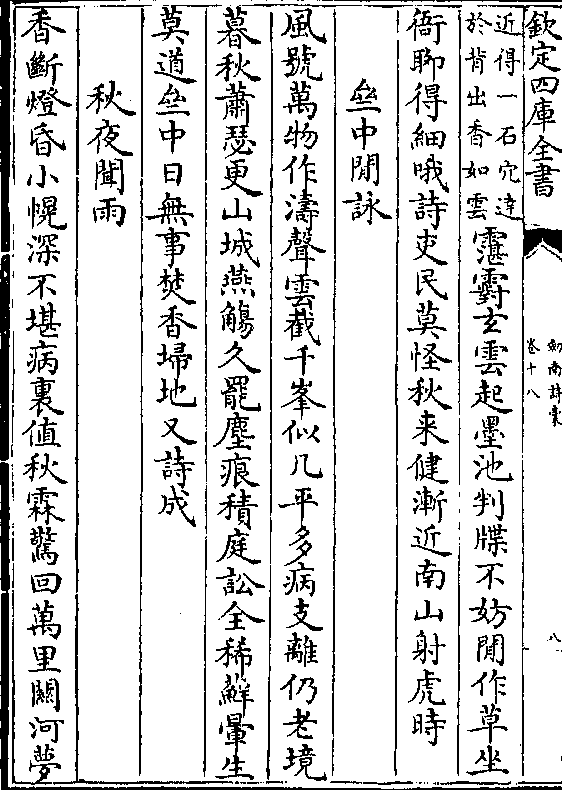 欽定四庫全書
劍南詩稾
卷十八
八
近得一石穴達
於背出香如雲
霮䨴玄雲起墨池判牒不妨閒作草坐
衙聊得細哦詩吏民莫怪秋来健漸近南山射虎時
亝中閒詠
風號萬物作濤聲雲截千峯似几平多病支離仍老境
暮秋蕭瑟更山城燕觴久罷塵痕積庭訟全稀蘚暈生
莫道亝中日無事焚香埽地又詩成
秋夜聞雨
香斷燈昏小幌深不堪病裏值秋霖驚回萬里關河夢